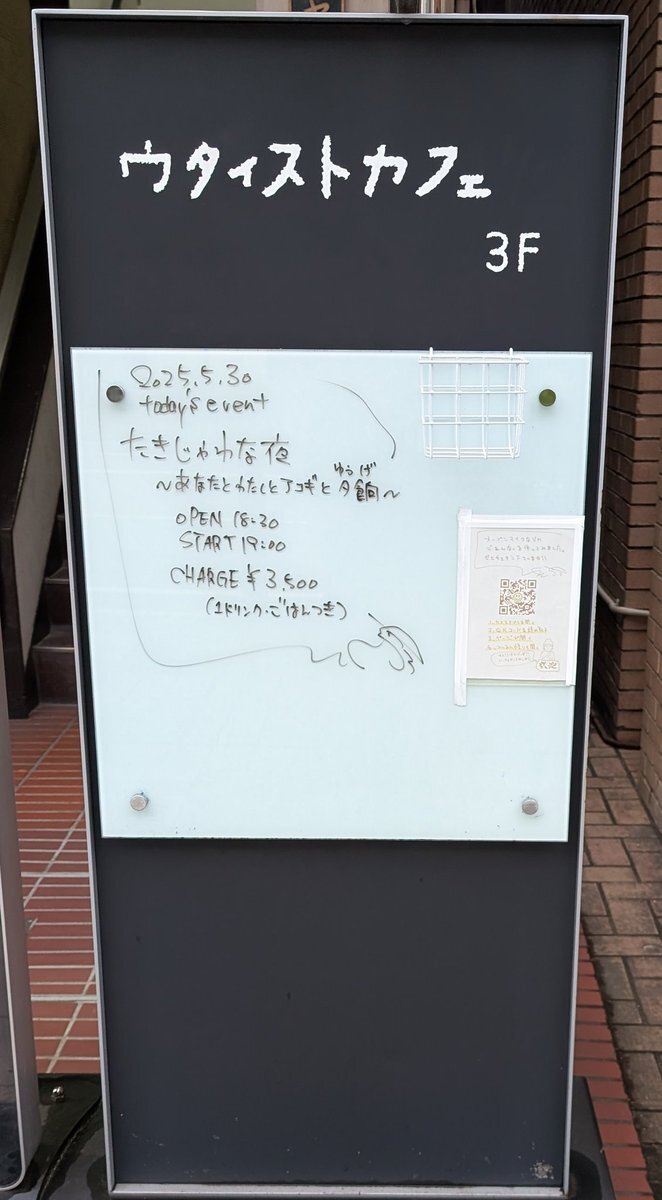 ウタイストカフェ
3F
2025.5.30
today's event
たきじゃわな夜
～あなたとわたしとアコギと夕餉～
ゆうげ
OPEN 18:30
START 19:00
CHARGE ¥3,500
(1ドリンク・ごはんつき)